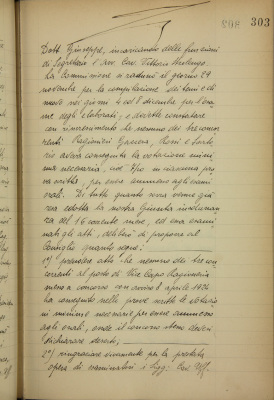 303
Dott. Giuseppe, incaricando delle funzioni
di Segretario l'Avv. Cav. Vittorio
La Commissione si radunò il giorno 29
novembre per la compilazione dei temi e di
nuovo nei giorni 4 ed 8 dicembre per l'esa
me degli elaborati, e dovette constatare
con rincrescimento che nessuno dei tre concor
renti Ragionieri Rossi e
aveva conseguito la votazione mini
ma necessaria, nelle
scritte, per essere ammesso agli esami
orali. Di tutto quanto sopra venne già
resa edotta la nostra Giunta
del 16 corrente mese, ed ora esami
nati gli atti, delibera di proporre al
Consiglio quanto segue:
1°) prendere atto che nessuno dei tre con
correnti al posto di Vice Capo Ragioniere
messo a concorso con avviso 8 aprile 1926
ha conseguito nelle prove scritte la votazio
ne minima necessaria per essere ammesso
agli orali, onde il concorso stesso devesi
dichiarare deserto;
2°) ringraziare vivamente per la prestata
opera di esaminatori i Sigg. Cav. Uff.